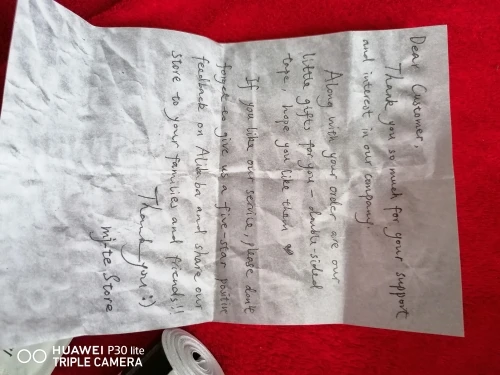 Dear Customer,
Thank you so much for your support
and interest in our company.
Along with your order are our
little gifts for you - double-sided
tape, hope you like them ♥
If you like our service, please don't
forget to give us a five-star positive
feedback on Alibaba and share our
store to your families and friends!!
Thank you :)
mj-te Store
HUAWEI P30 lite
TRIPLE CAMERA